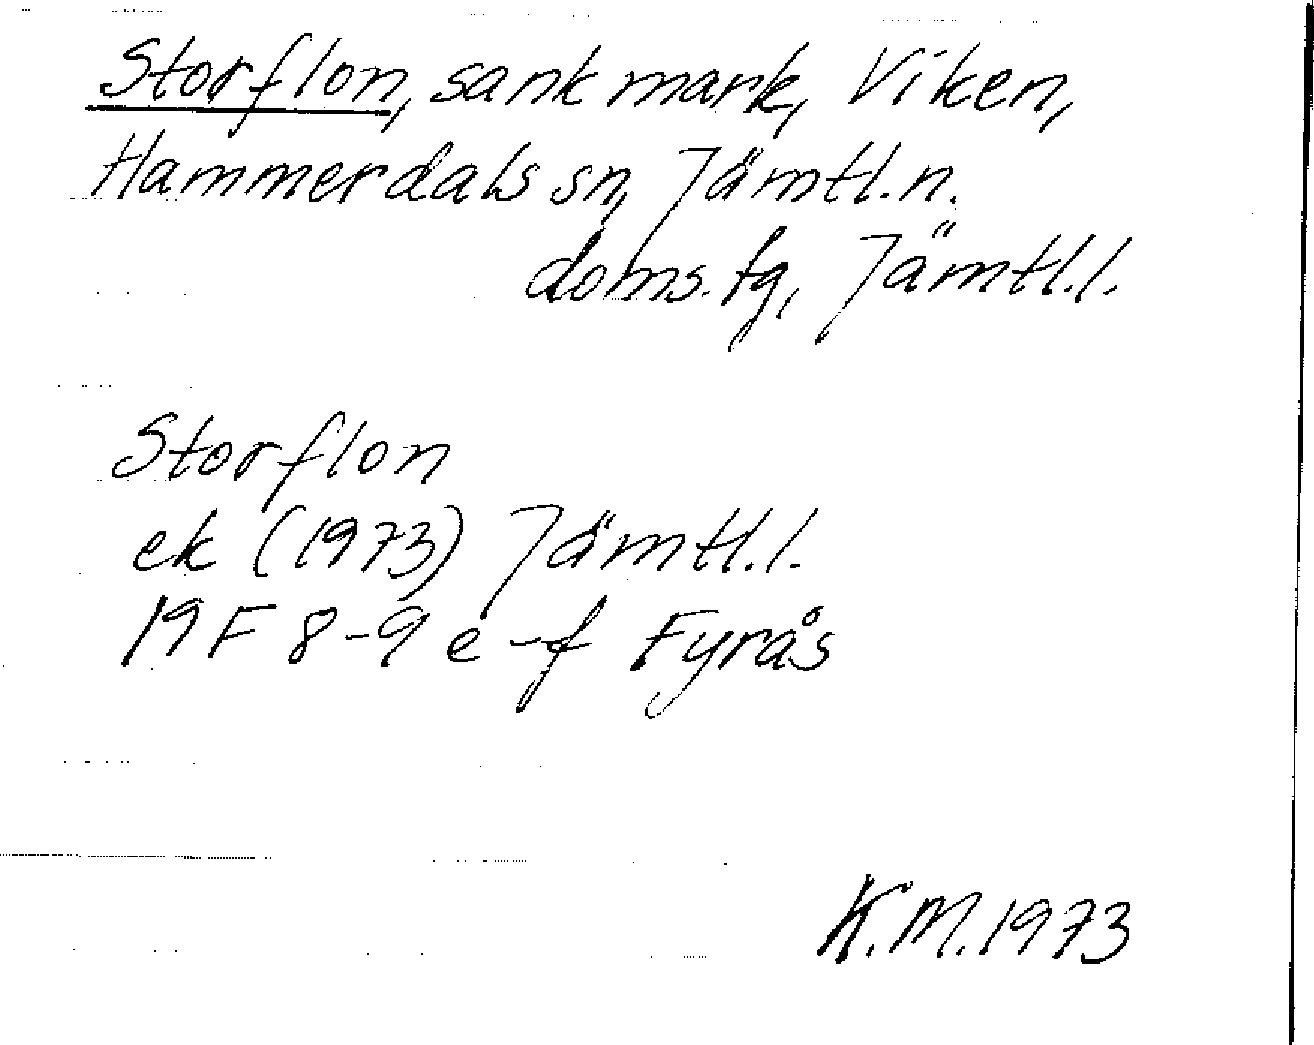 Storflon, sank mark, Viken,
Hammerdals sn, Jämtl.n.
doms.fg, Jämtl.l.
Storflon
ek (1973) Jämtl.l.
19 F 8-9 e-f Fyrås
K.M.1973